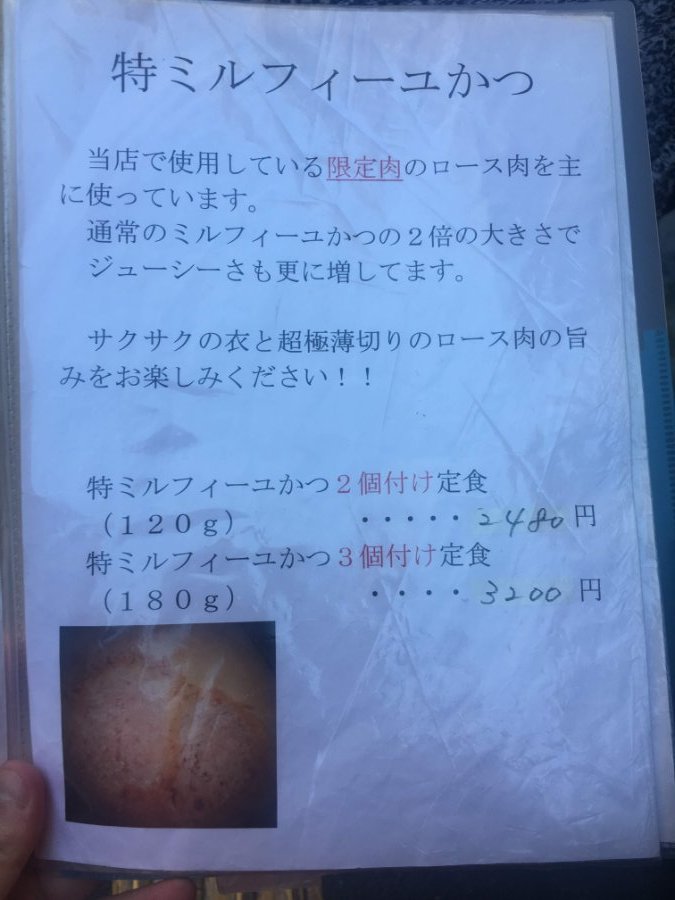 特ミルフィーユかつ
当店で使用している限定肉のロース肉を主
に使っています。
通常のミルフィーユかつの２倍の大きさで
ジューシーさも更に増してます。
サクサクの衣と超極薄切りのロース肉の旨
みをお楽しみください！！
特ミルフィーユかつ２個付け定食
（１２０ｇ）　　　　・・・・・2480円
特ミルフィーユかつ３個付け定食
（１８０ｇ）　　　　・・・・3200円